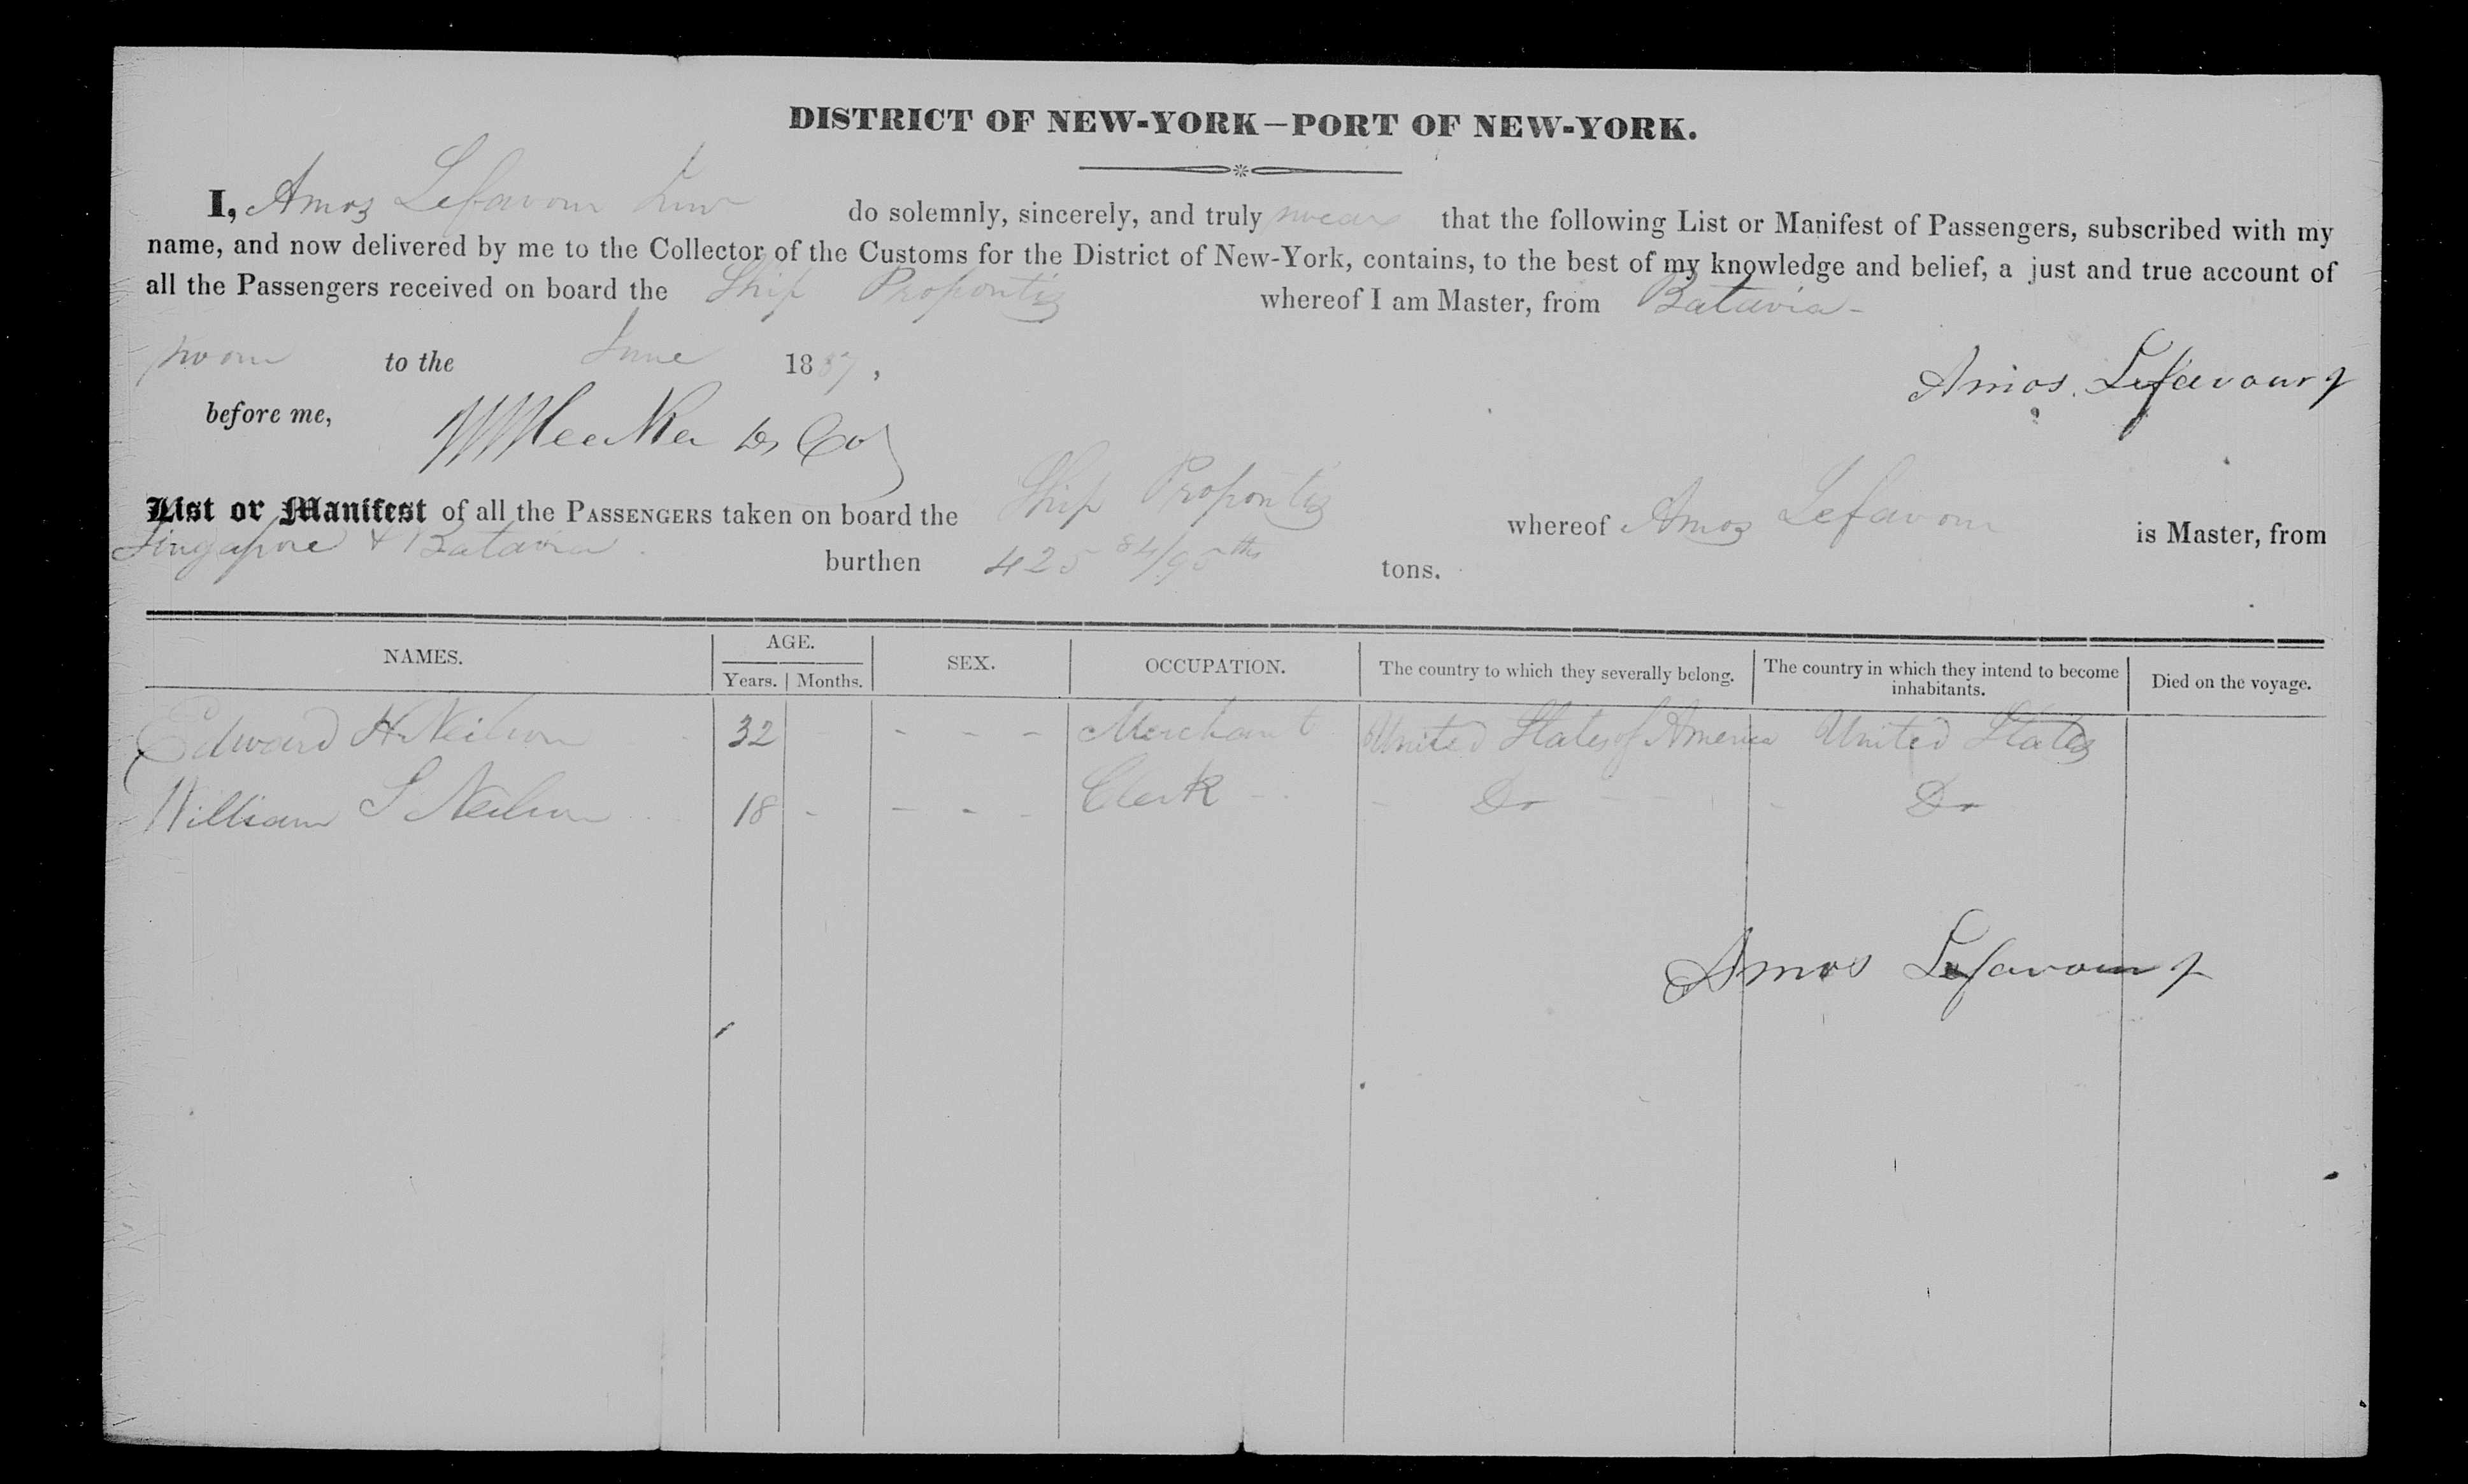 DISTRICT OF NEW-YORK—PORT OF NEW-YORK.
I, Amos Lefavour Junr do solemnly, sincerely, and truly swear that the following List or Manifest of Passengers, subscribed with my
name, and now delivered by me to the Collector of the Customs for the District of New-York, contains, to the best of my knowledge and belief, a just and true account of
all the Passengers received on board the Ship Propontis whereof I am Master, from Batavia -
Sworn to the June 1837,
Amos Lefavour Jr
before me,
List or Manifest of all the PASSENGERS taken on board the Ship Propontis whereof Amos Lefavour is Master, from
Singapore & Batavia. burthen 425 84/95ths tons.
NAMES. AGE. SEX. OCCUPATION. The country to which they severally belong. The country in which they intend to become inhabitants. Died on the voyage.
Years. Months.
Edward H Neilson 32 - - - Merchant United States of America United States
William S Neilson 18 - - - - Clerk - - Do - - - Do
Amos Lefavour Jr